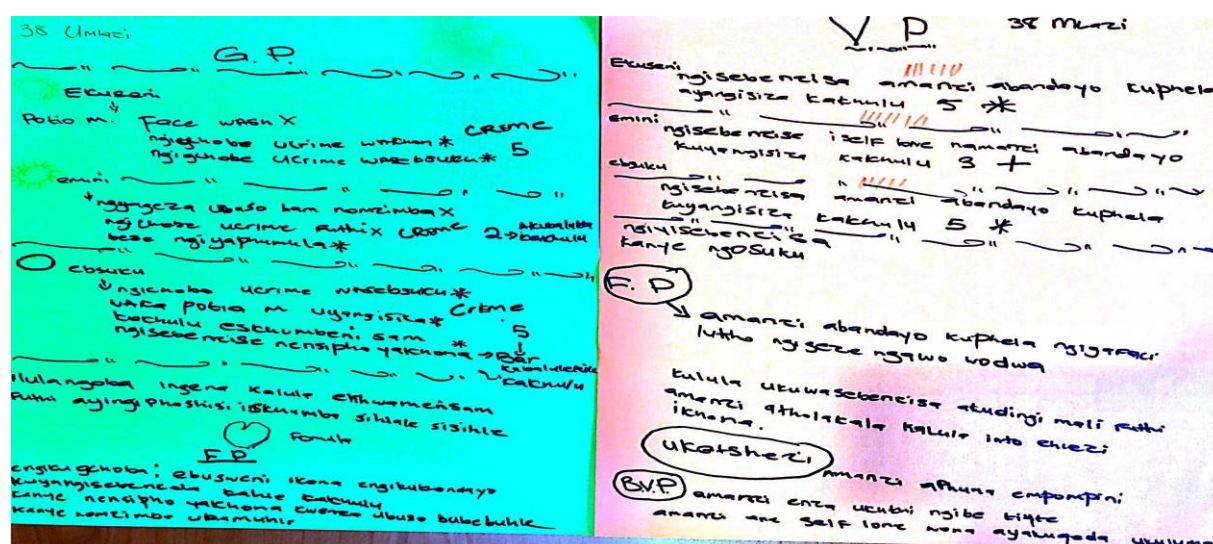 38 Umlazi
G.P.
Ekuseni
Potio m. Face wash X
ngigchobe ucrime wakhon * CREME
ngigchobe ucrime wasebsuku * 5
emini
ngyageza ubuso bam nomzimba X
ngichobe ucrime futhi X CREME 2 → Akubalula
bese ngiyaphumula * kakhulu
ebsuku
ngichobo ucrime wasebsuku * CREME
waka potio m uyangisiza * 5
kakhulu eskhumbeni sam
ngisebenzise nensipho yakhona * → Bar
kakhulu
lula ngoba ingena kalula esikhwameni sam
futhi ayingiphashisi iskhumba sihlale sisihle
Fonula
F.P
ngikugchoba: ebusweni ikona engikubonayo
kuyangisebenzela kahle kakhulu
kanye nensipho yakhona kwenza ubuso bubebuhle
kanye nomzimba ubemuhle
V P 38 Mlazi
Ekuseni
ngisebenzisa amanzi abandayo kuphela
ayangisiza kakhulu 5 *
emini
ngisebenzise iself love namanzi abandayo
kuyangisiza kakhulu 3 +
ebsuku
ngisebenzisa amanzi abandayo kuphela
kuyangisiza kakhulu 5 *
ngiyisebenzisa
kanye ngosuku
F.P
amanzi abandayo kuphela ngigafaci
lutho ngigeze ngawo wodwa
kulula ukuwasebenzisa akudingi mali futhi
amanzi atholakala kalula into ehlezi
ikhona.
ukotshezi
Amanzi aphuma empompini
B.V.P amanzi enza ukuthi ngibe
amanzi ane self love wona ayakuqoda